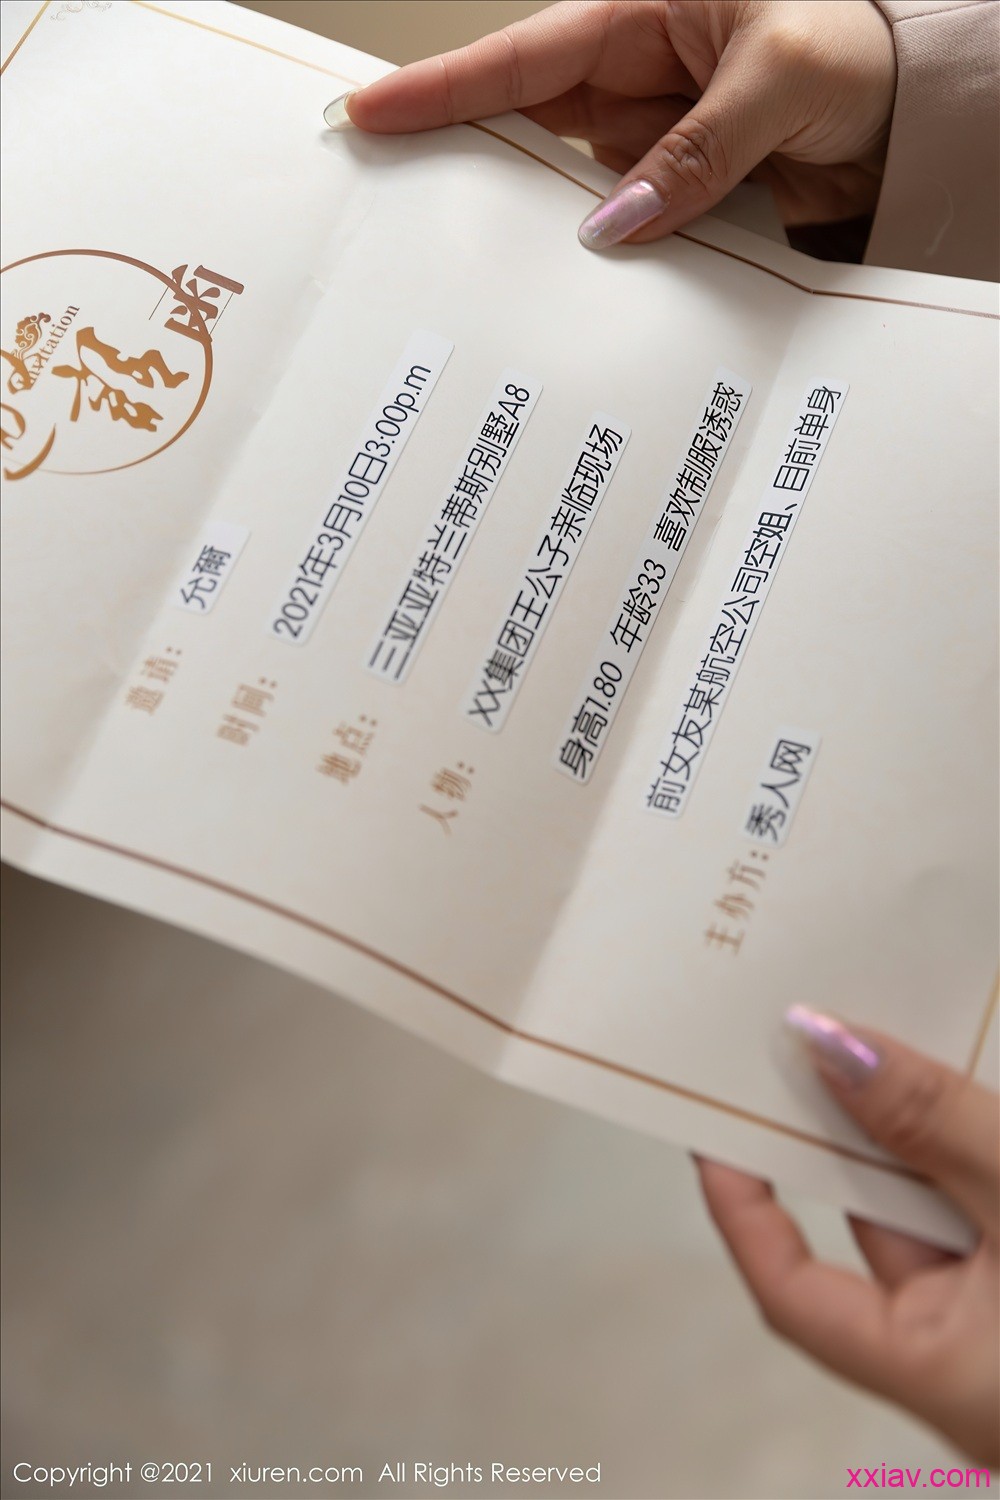 请
函
Invitation
邀请：允爾
时间：2021年3月10日3:00p.m
地点：三亚亚特兰蒂斯别墅A8
人物：XX集团王公子亲临现场
身高1.80 年龄33 喜欢制服诱惑
前女友某航空公司空姐、目前单身
主办方：秀人网
Copyright @2021 xiuren.com All Rights Reserved
xxiav.com